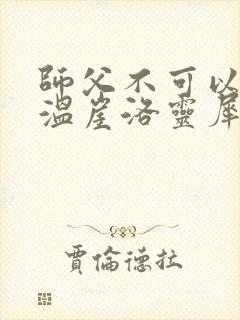 師父不可以
溫崖洛靈犀
賈倫德拉